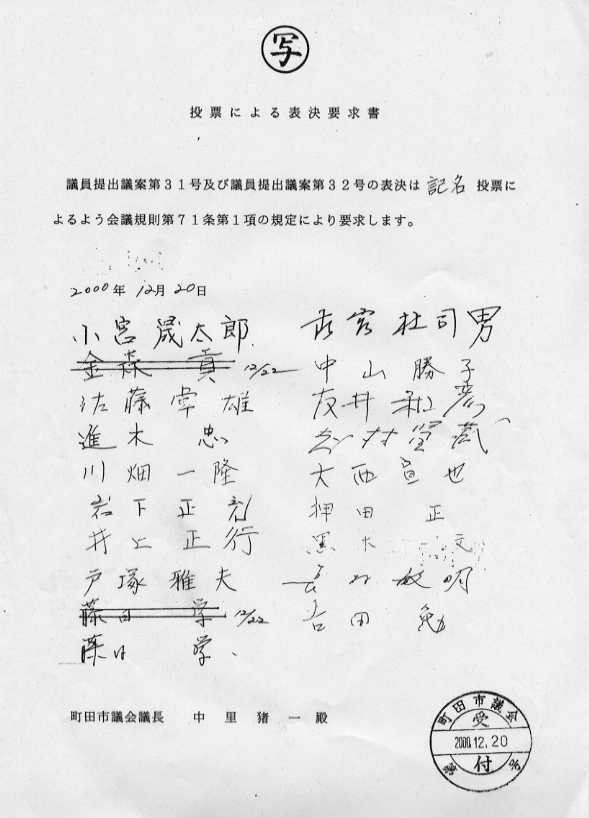 写
投票による表決要求書
議員提出議案第31号及び議員提出議案第32号の表決は 記名 投票に
よるよう会議規則第71条第1項の規定により要求します。
2000年 12月 20日
小宮 晟太郎
金森 貢 12/22 中山 勝子
佐藤 常雄 友井 和彦
進木 忠
川畑 一隆 大西 宣也
岩下 正 押田 正
井上 正行 黒木 文
戸塚 雅夫 長村 敏明
藤田 学 12/22 吉田 勉
藤田 学
町田市議会議長 中里猪一殿
町田市議会
受
2000.12.20
付